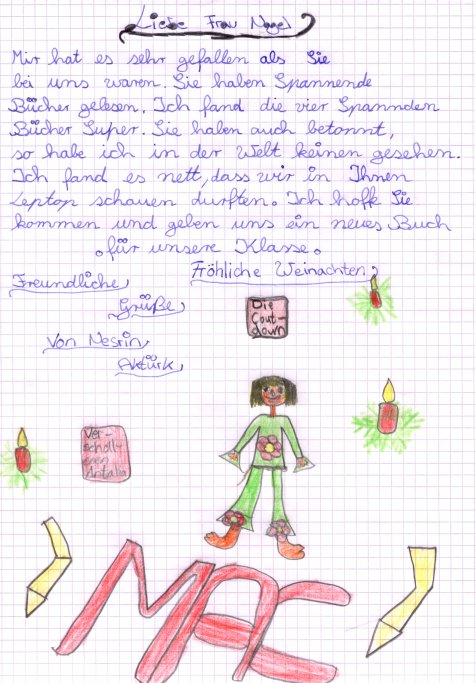 Liebe Frau Nagel
Mir hat es sehr gefallen als Sie
bei uns waren. Sie haben Spannende
Bücher gelesen. Ich fand die vier Spanndem
Bücher Super. Sie haben auch betonnt,
so habe ich in der Welt keinen gesehen.
Ich fand es nett, dass wir in Ihnen
Leptop schauen durften. Ich hoffe Sie
kommen und geben uns ein neues Buch
für unsere Klasse.
Fröhliche Weinachten
Freundliche
Grüße
Von Nesrin
Aktürk
Die
Cout-
down
Ver-
scholl-
enen
MAC